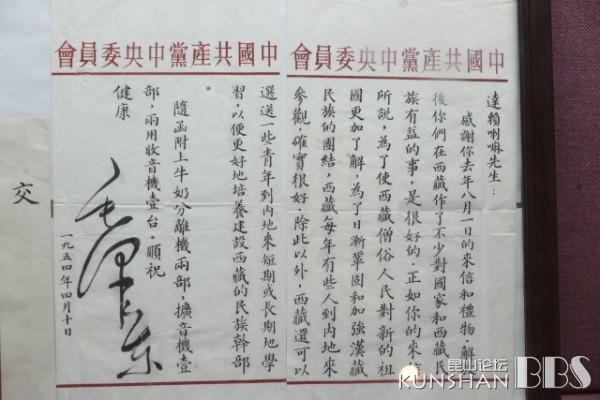 中國共產黨中央委員會
達賴喇嘛先生：
感謝你去年八月一日的來信和禮物，解放
後你們在西藏作了不少對國家和西藏民
族有益的事，是很好的，正如你的來信
所說，為了使西藏僧俗人民對新的祖
國更加了解，為了日漸鞏固和加強漢藏
民族的團結，西藏每年有些人到內地來
參觀，確實很好。除此以外，西藏還可以
中國共產黨中央委員會
選送一些青年到內地來短期或長期地學
習，以便更好地培養建設西藏的民族幹部
。
隨函附上牛奶分離機兩部，擴音機壹
部，兩用收音機壹台。順祝
健康
毛澤東
一九五四年四月十日
交
昆山论坛
KUNSHAN BBS